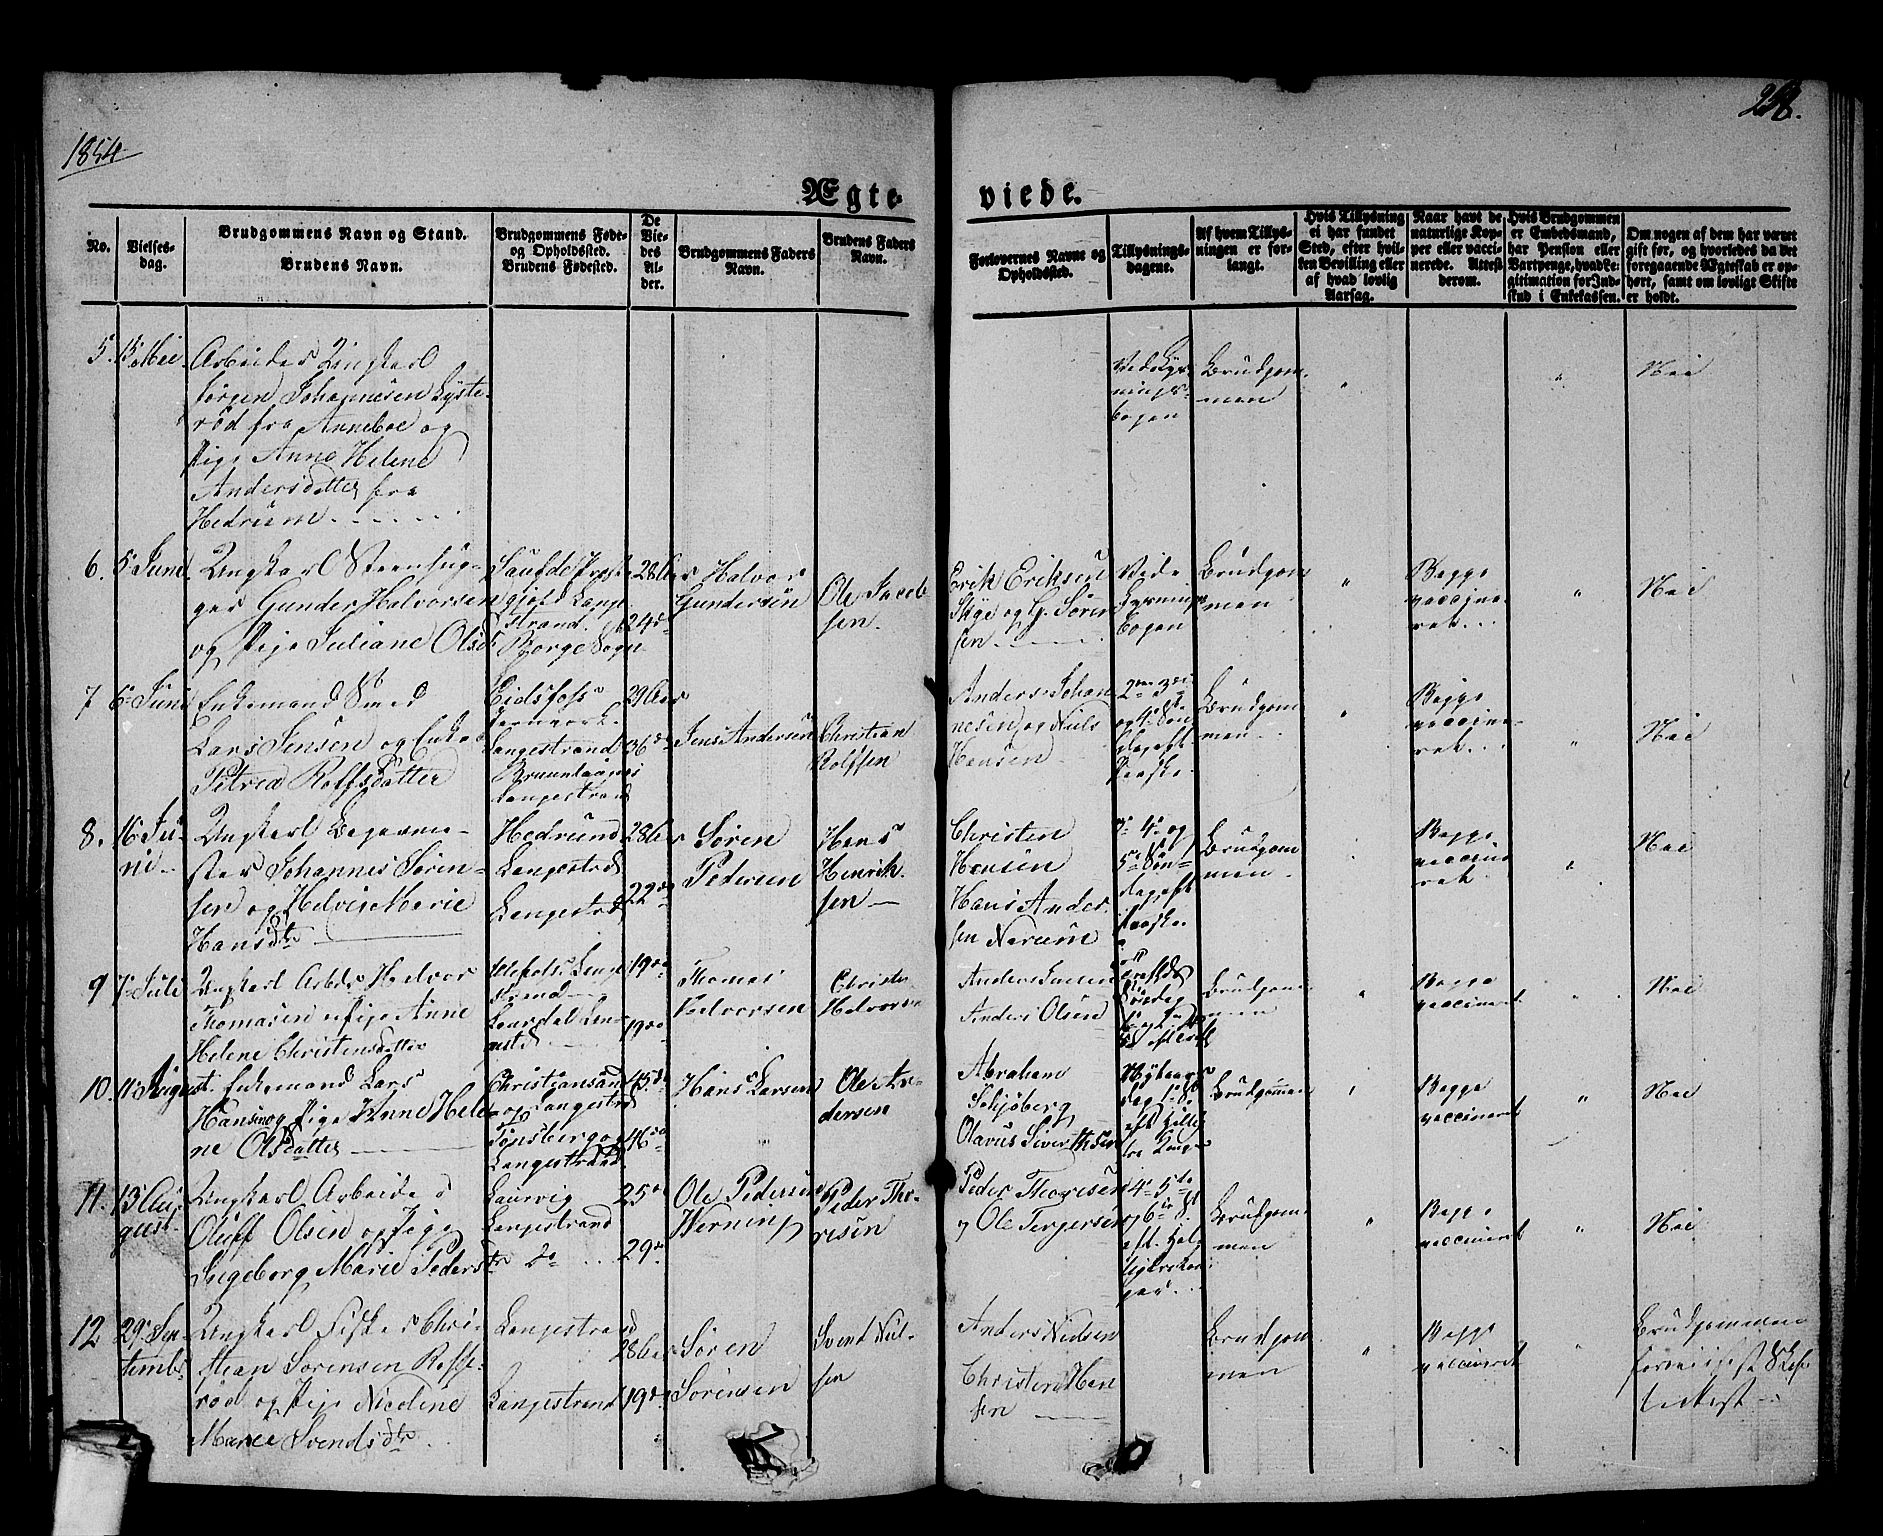 1854
258.
Ægte-
viede.
No.
Vielses-
dag.
Brudgommens Navn og Stand.
Brudens Navn.
Brudgommens Føde-
og Opholdssted.
Brudens Fødested.
De
Vie-
des
Al-
der.
Brudgommens Faders
Navn.
Brudens Faders
Navn.
Forlovernes Navne og
Opholdssted.
Tillysnings-
dagene.
Af hvem Tillys-
ningen er for-
langt.
Hvis Tillysning
ei har fundet
Sted, efter hvil-
ken Bevilling eller
af hvad lovlig
Aarsag.
Naar havt de
naturlige Kop-
per eller vacci-
nerede. Attest
derom.
Hvis Brudgommen
er Embedsmand,
har Pension eller
Vartpenge, hvad Le-
gitimation for Ind-
skud i Enkekassen.
Om nogen af dem har været
gift før, og hvorledes da det
foregaaende Ægteskab er op-
hørt, samt om lovligt Skifte
er holdt.
5. 15 Mai
Arbeider Ungkarl
Jørgen Johannesen Lyste-
rød fra Anneboe og
Pige Anne Helene
Andersdatter fra
Hedrum
Vide Lys-
nings-
bogen
Brudgom-
men
"
"
Nei
6. 5 Juni
Ungkarl Steenhug-
ger Gunder Halvorsen
og Pige Juliane Olsd
gjeld Lange-
strand.
Borge Sogn
28 Aar
24 do
Halvor
Gundersen
Ole Jacob-
sen.
Erik Eriksen
og G. Søren-
sen
Vide
Lysnings
bogen
Brudgom
men
"
Begge
vaccine-
ret
"
Nei
7 6 Juni
Enkemand Smed
Lars Jensen og Enke
Petrea Rolfsdatter
Eidsfoss
Jernverk
Langestrand
Brunlaugnes
Langestrand
29 Aar
36 do
Jens Andersen
Christian
Rolfsen
Anders Johan
nesen og Niels
Hansen
2den 3die
og 4de Søn
dag eft.
Paaske
Brudgom
men
"
Begge
vaccine-
ret
"
Nei
8. 16 Ju-
ni
Ungkarl Bagerme-
ster Johannes Søren-
sen og Helvig Marie
Hansdtr
Hedrum
Langestrd
Langestrd
28 Aar
22 do
Søren
Pedersen
Hans
Henrik-
sen
Christen
Hansen
Hans Ander-
sen Nærum
3. 4. og
5. Søn-
dag eft
Paaske
Brudgom
men
Begge
vaccine
ret
"
Nei
9 7 Juli
Ungkarl Arbdr Halvor
Thomasen og Pige Anne
Helene Christensdatter
Lange-
strand
Laurdal Lan-
gestd
19 do
19 do
Thomas
Halvorsen
Christen
Halvorsen
Anders
Anders Olsen
Brudgom-
men
"
Begge
vaccineret
"
Nei
10. 11 August
Enkemand Lars
Hansen og Pige Anne Hele-
ne Olsdatter
Christiansand
og Langestrd
Tønsberg og
Langestrand
45 do
46 do
Hans Larsen
Ole An-
dersen
Abraham
Schjøberg
Olavus Siverthsen
Nytaars
dag
eft Hellig
tre Konge
Brudgommen
"
Begge
vaccineret
"
Nei
11. 13 Au-
gust
Ungkarl Arbeider
Oluff Olsen og Pige
Ingeborg Marie Peders
dtr
Laurvig
Langestrand
do
25 do
29 do
Ole Pedersen
Werning
Peder Tho-
resen
Peder Thoresen
og Ole Tergersen
4 5te
og 6te S.
eft. Hel
lig
Brudgom-
men
"
Begge
vaccineret
"
Nei
12 29 Sep-
tembr
Ungkarl Fisker Chri-
stian Sørensen Roppe-
rød og Pige Nicoline
Maree Svendsdtr
Langestrand
Langestrand
28 Aar
19 do
Søren
Sørensen
Svend Niel-
sen
Anders Nielsen
Christen Han
sen
Brudgom-
men
"
Begge
vaccineret
"
Brudgommen